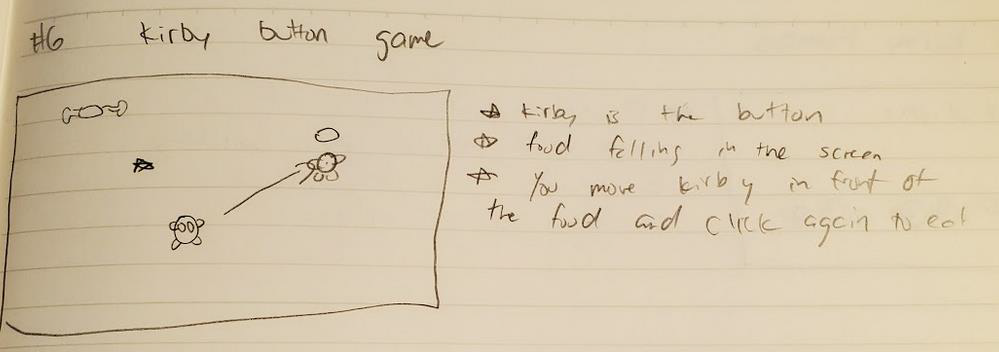 #6 kirby button game
kirby is the button
food falling in the screen
You move kirby in front of
the food and click again to eat